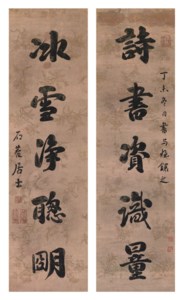 詩書資識量
丁未
冰雪淨聰明
石菴居士